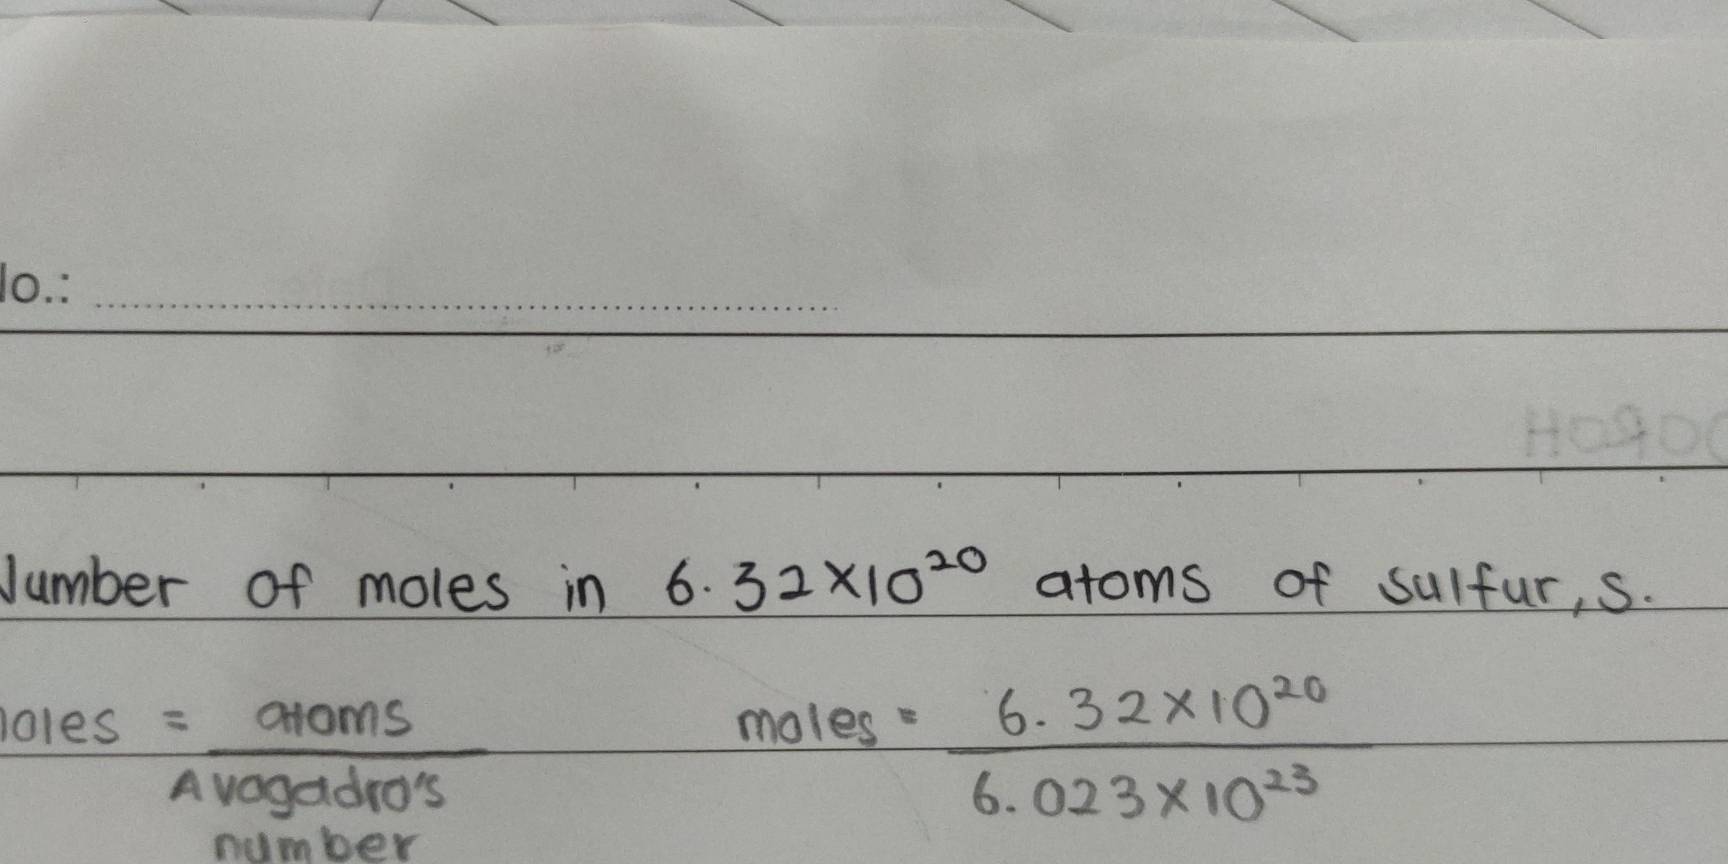 No.:
Number of moles in 6.32×10²⁰ atoms of sulfur, s.
moles = atoms / Avagadro's number
moles = 6.32×10²⁰ / 6.023×10²³